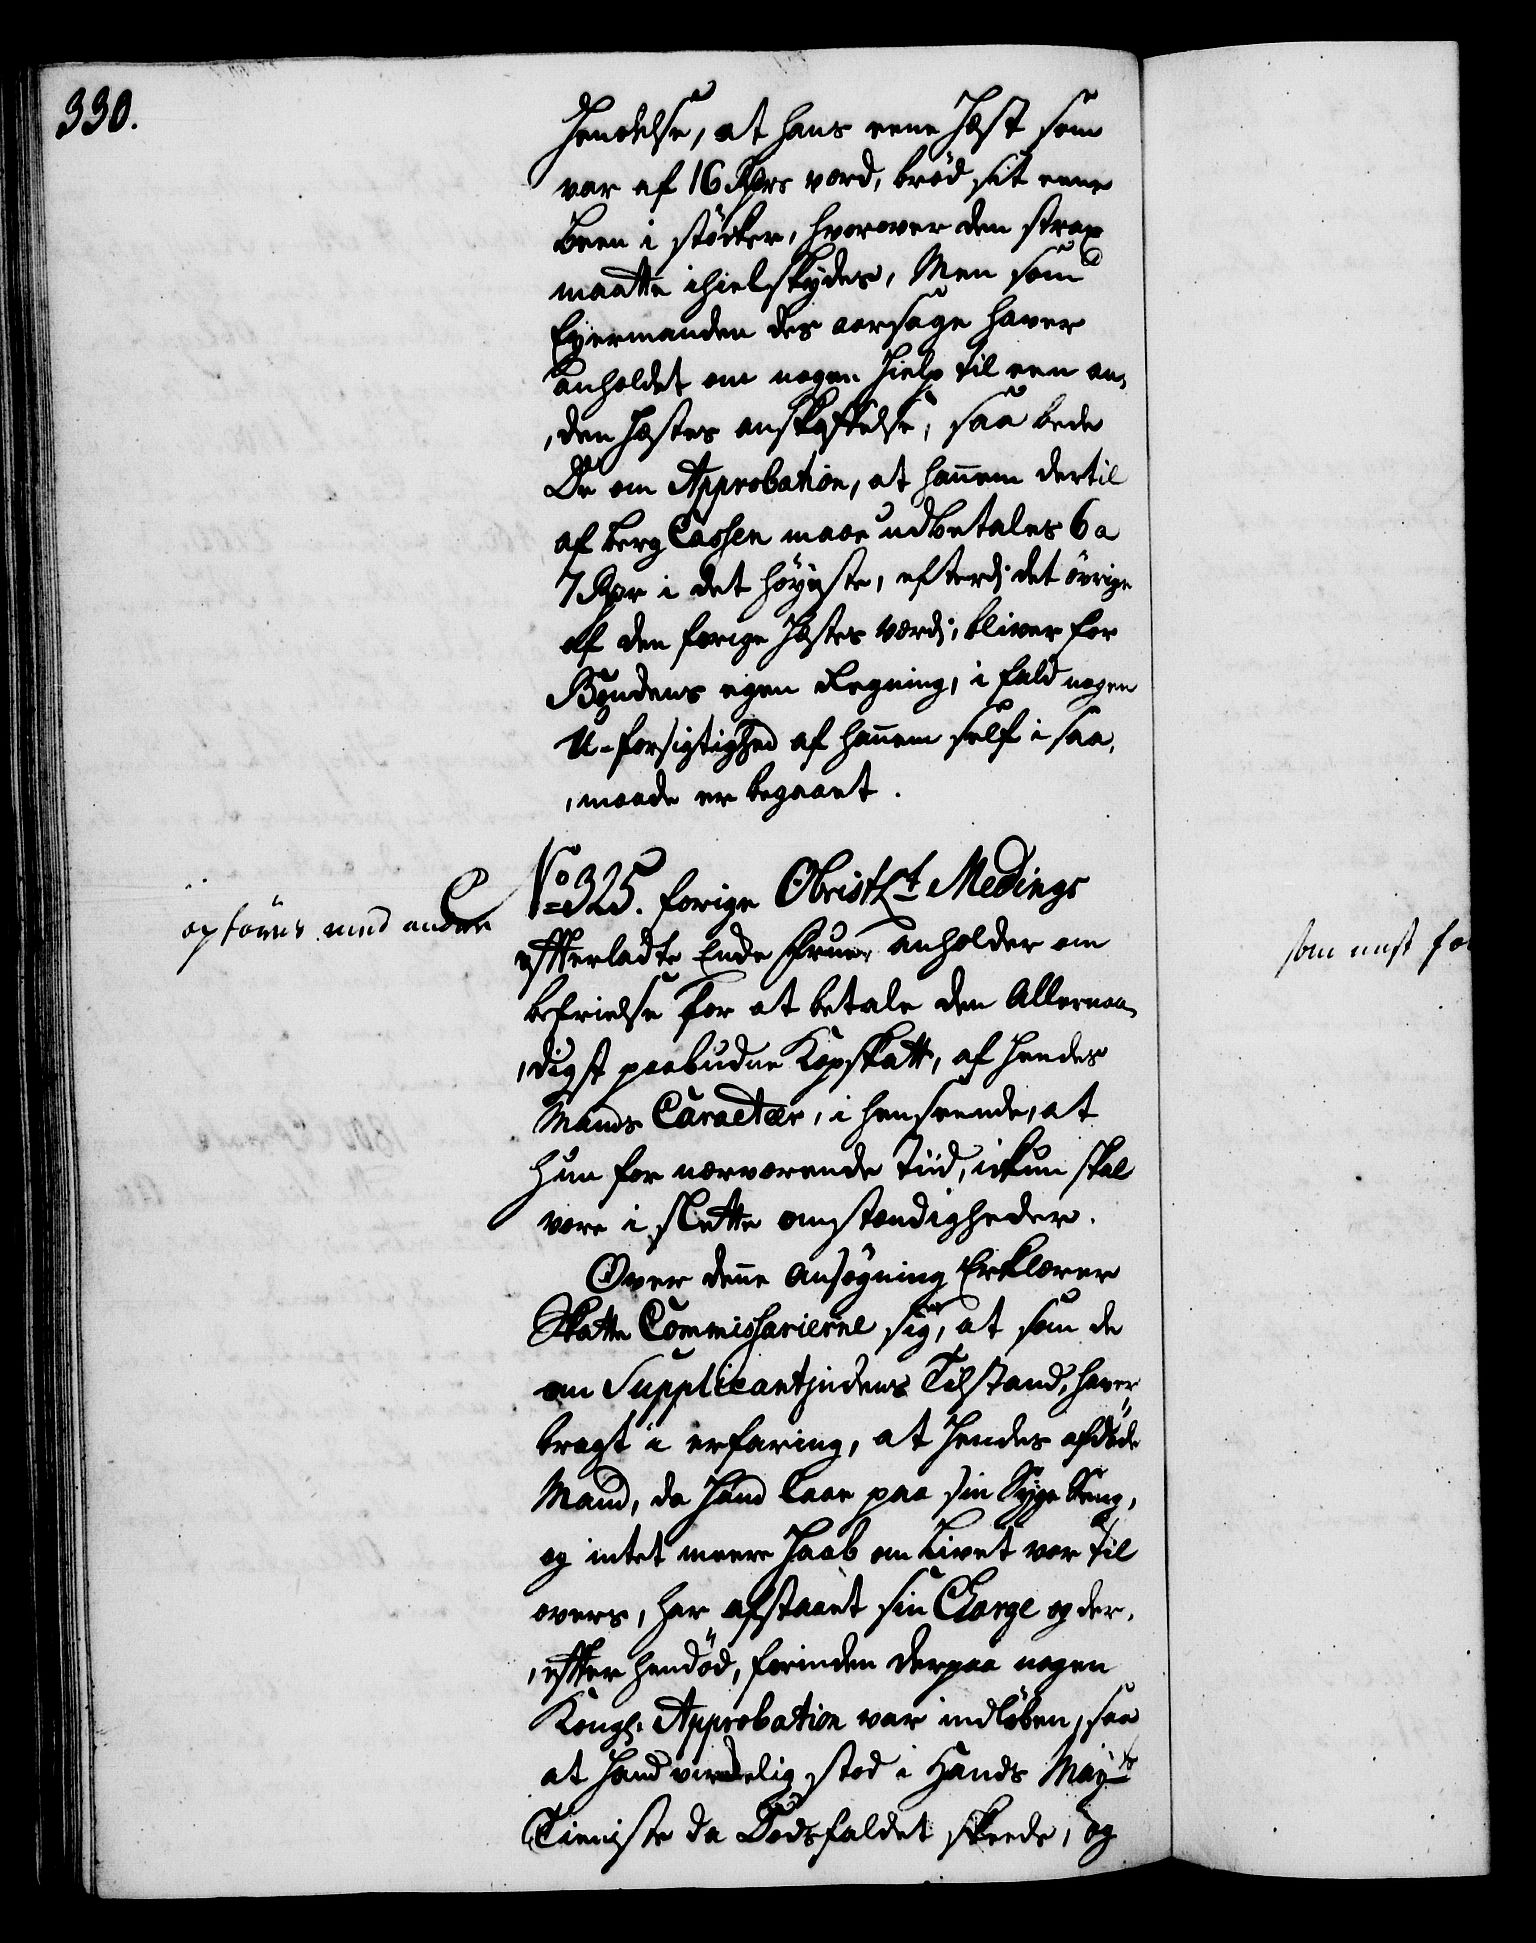 330.
Hendelse, at hans eene Hæst som
var af 16 Rdrs værd, brød sit eene
Been i støcker, hvorover den strax
maatte ihielskydes, Men som
Eyermanden des aarsage haver
anholdet om nogen Hielp til een an-
den Hæstes anskaffelse, saa bede
De om Approbation, at hannem dertil
af Berg Cassen maae udbetales 6 a
7 Rdr i det høyeste, efterdj det øvrige
af den forige Hæstes værdj, bliver for
Bondens egen Regning, i fald nogen
U-forsigtighed af hannem self i saa-
maade er begaaet.
No 325. forige Obristlt Medings
opføres med andre
effterladte Encke Frue, anholder om
befrielse for at betale den Allernaa-
digst paabudne Kopskatt, af hendes
Mands Caracteer, i henseende, at
hun for nærværende Tiid, ickun skal
være i slette omstændigheder.
Over denne Ansøgning Erklærer
Skatte Commissarierne sig, at som de
om Supplicantjndens Tilstand, haver
bragt i erfaring, at Hendes afdøde
Mand, da Hand laae paa sin Syge Seng,
og intet meere Haab om Livet var til
overs, har afstaaet sin Charge og der-
effter hendød, forinden derpaa nogen
Kongl. Approbation var indløben, saa
at Hand virckelig stod i Hands Mayts
Tieniste da Dødsfaldet skeede, og
som mist fo